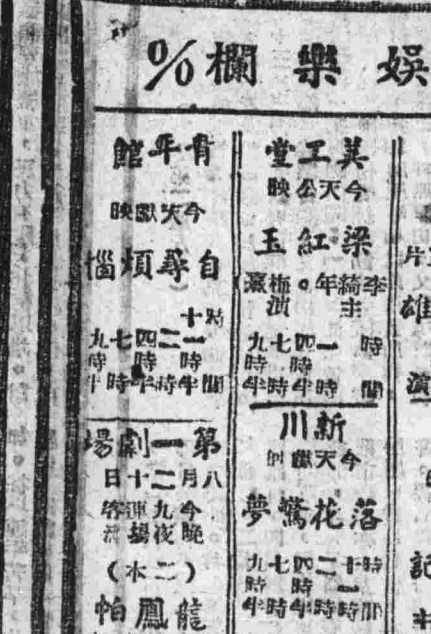 娛樂欄
片
雄
演
記
美工堂
今天公映
梁紅玉
李綺年
主演
時間
一時
四時半
七時
九時半
新川
今天獻映
落花驚夢
時間
十一時
二時
四時半
七時
九時半
青年館
今天獻映
自尋煩惱
時間
十一時半
二時
四時半
七時
九時半
第一劇場
八月二十日
今晚
九夜
連場
客滿
(二本)
龍鳳帕